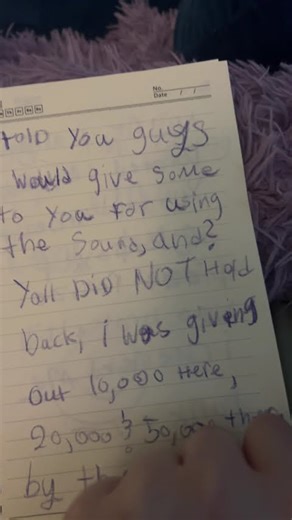 No.
Date / /
told you guys
would give some
to you for using
the sound, and?
Yall DiD NOT Hold
back, i was giving
out 10,000 Here,
20,000 & 50,000
by